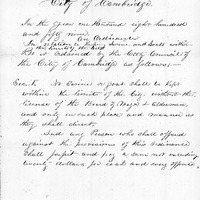 City of Cambridge.
In the year one thousand eight hundred
and fifty nine
An Ordinance
In relation to keeping Swine and Goats within
the limits of the City
Be it Ordained by the City Council of
the City of Cambridge as follows:—
Sec. 1. No Swine or goat shall be kept
within the limits of the City, without the
license of the Board of Mayor & Aldermen,
and only in such place and manner as
they shall direct.
And any Person who shall offend
against the provisions of this Ordinance
shall forfeit and pay a sum not exceeding
twenty dollars for each and every offence.